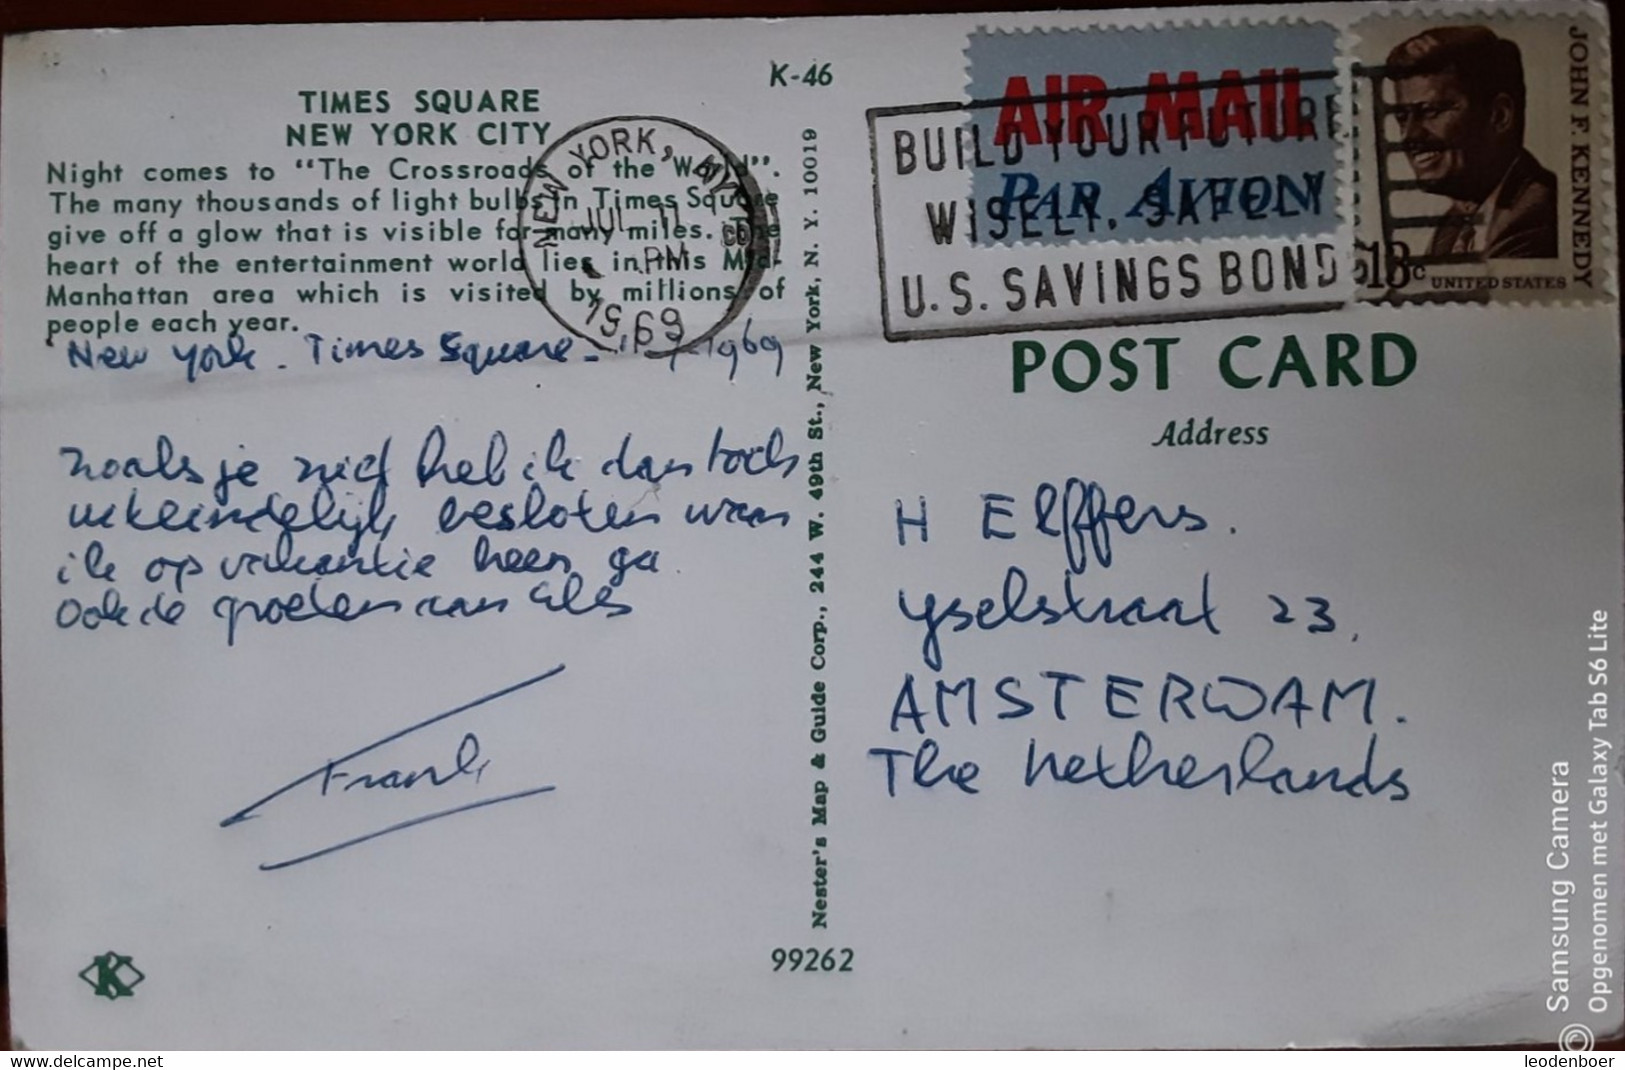 K-46
TIMES SQUARE
NEW YORK CITY
Night comes to "The Crossroads of the World".
The many thousands of light bulbs in Times Square
give off a glow that is visible for many miles. The
heart of the entertainment world lies in this Mid-
Manhattan area which is visited by millions of
people each year.
New York. Times Square - 1969
zoals je ziet heb ik dan toch
uiteindelijk besloten waar
ik op vakantie heen ga.
Ook de groeten aan Els
Frank
K
Nester's Map & Guide Corp., 244 W. 49th St., New York, N. Y. 10019
99262
NEW YORK, NY
JUL 11
PM
1969
AIR MAIL
PAR AVION
BUILD YOUR FUTURE
WISELY, SAFELY
U.S. SAVINGS BONDS
JOHN F. KENNEDY
13c
UNITED STATES
POST CARD
Address
H Elffers.
Yselstraat 23.
AMSTERDAM.
The Netherlands
© Samsung Camera
Opgenomen met Galaxy Tab S6 Lite
www.delcampe.net
leodenboer